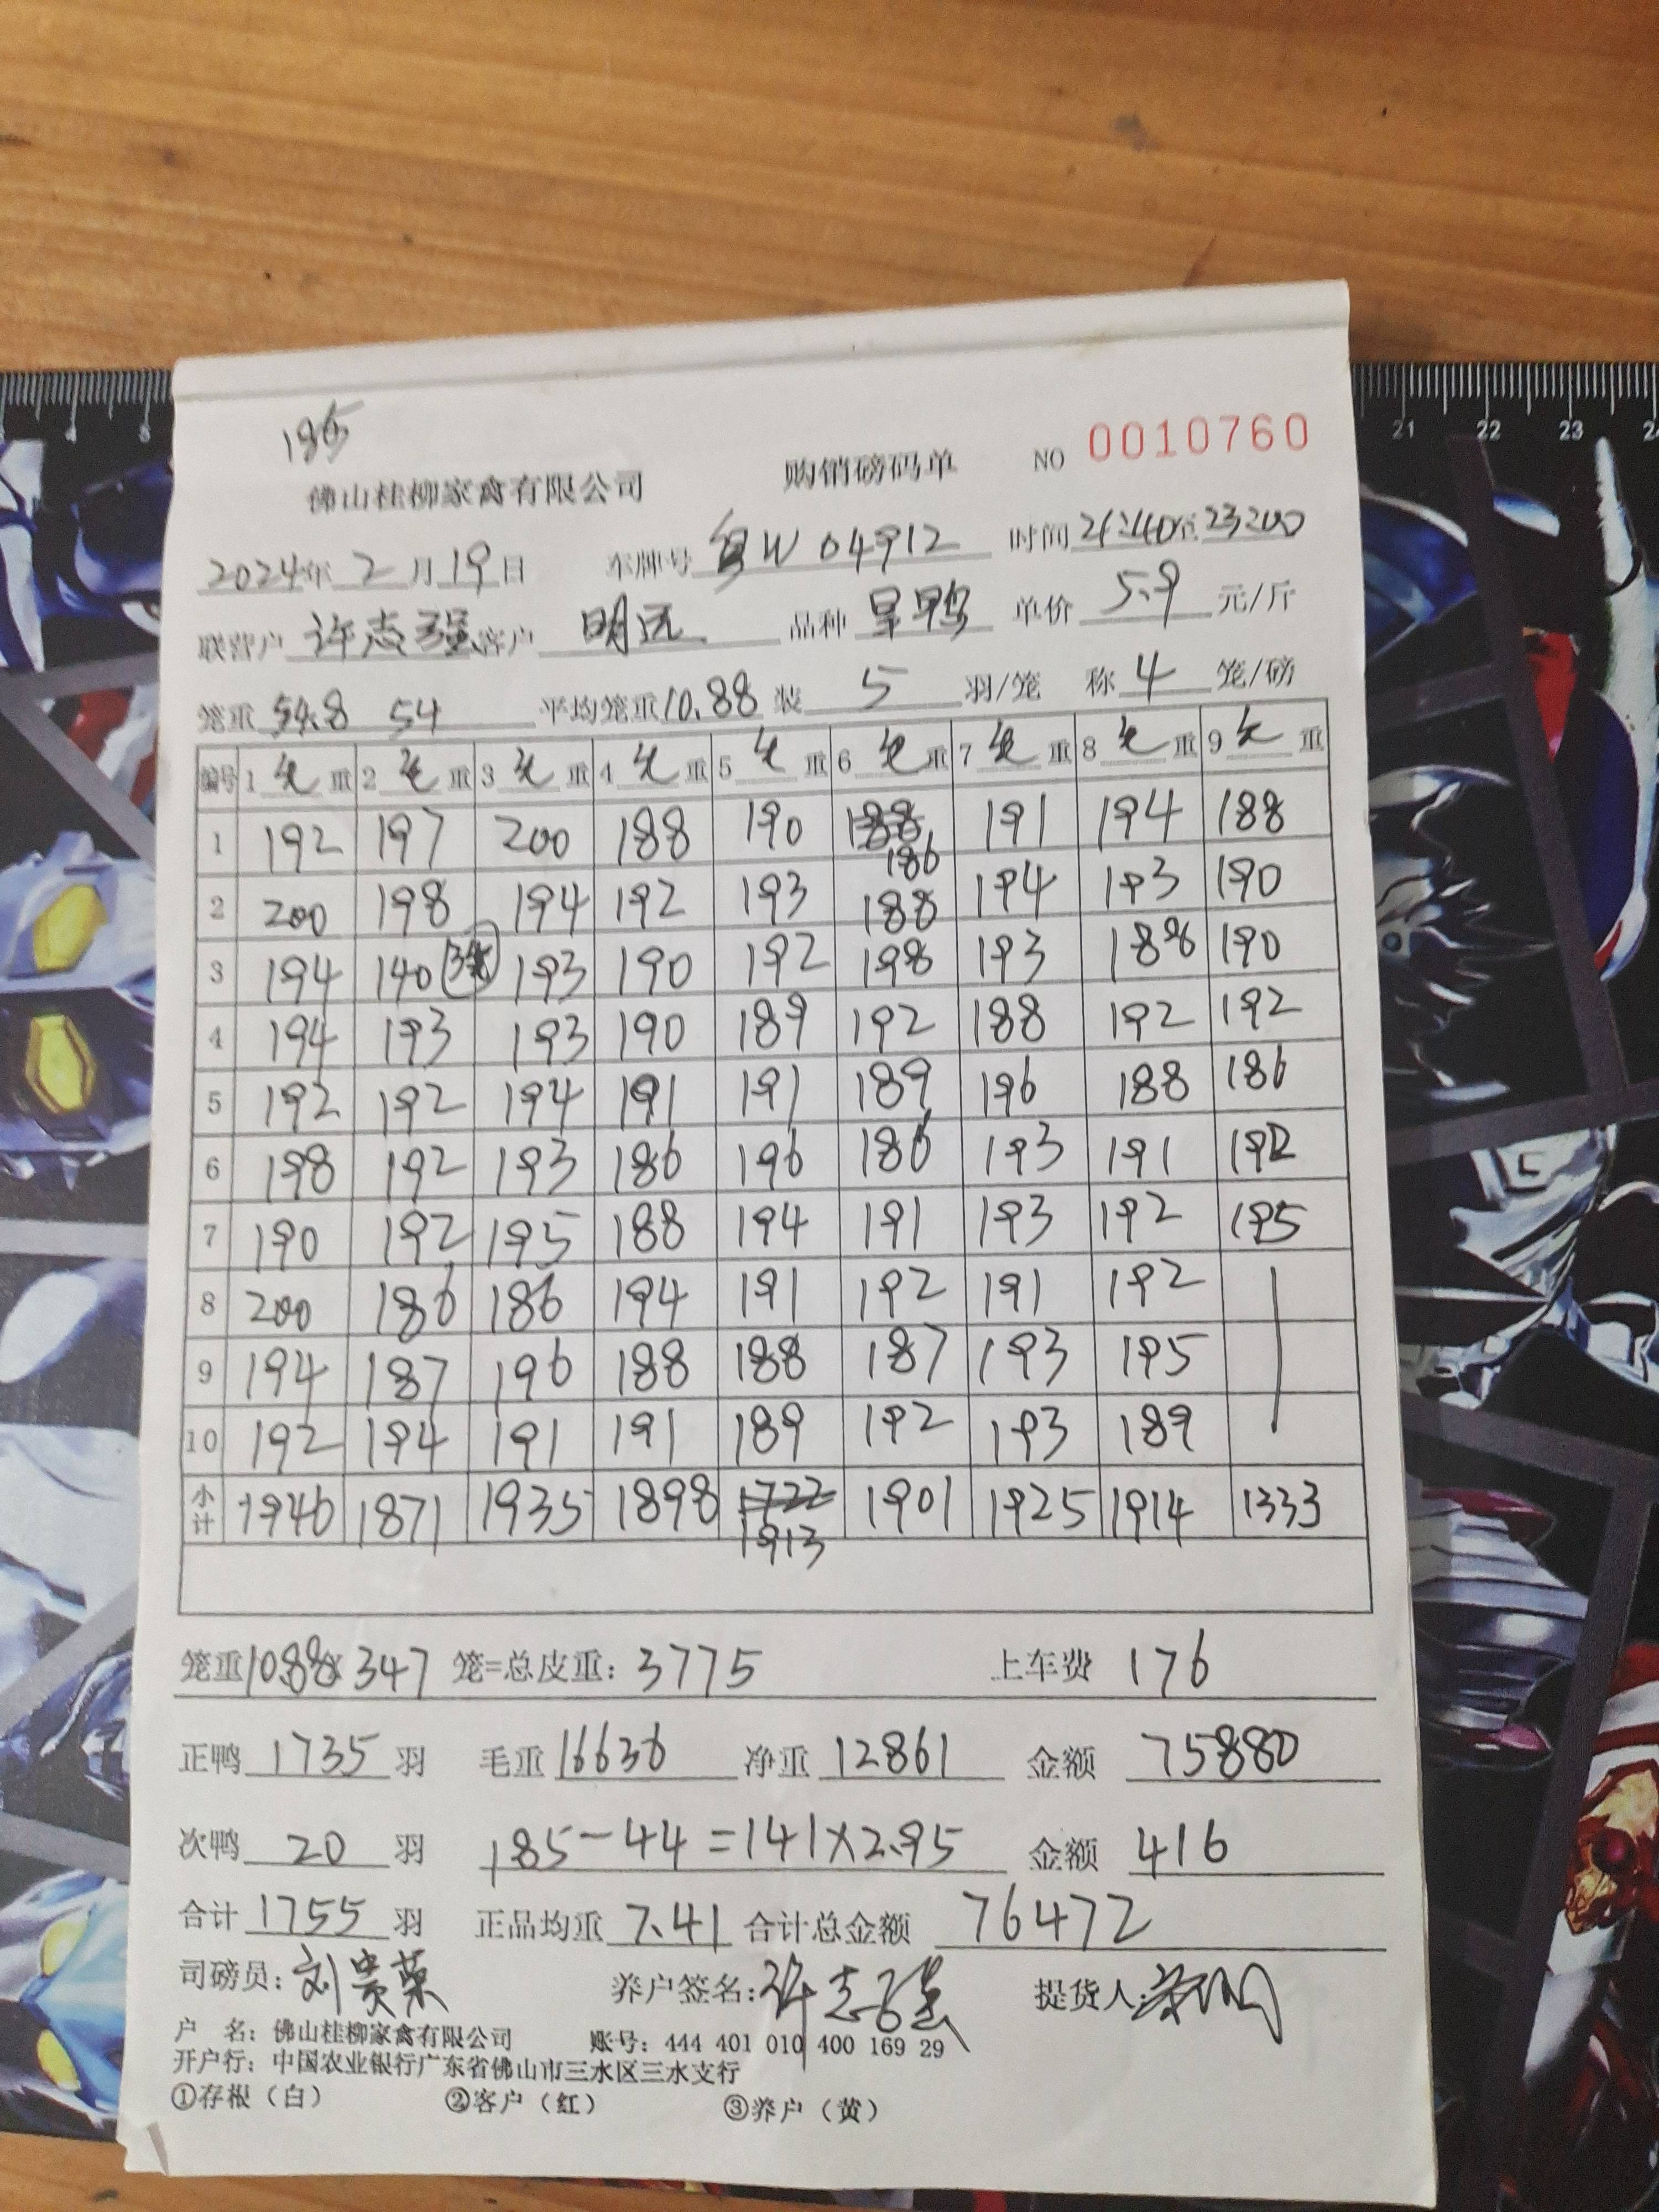 185
佛山桂柳家禽有限公司 购销磅码单 NO 0010760
2024年 2 月 19 日 车牌号 粤W 04912 时间 21:40至23:00
联营户 许志强 客户 明远 品种 呈鸭 单价 5.9 元/斤
笼重 54.8 54 平均笼重 10.88 装 5 羽/笼 称 4 笼/磅
编号 1 毛 重 2 毛 重 3 毛 重 4 毛 重 5 毛 重 6 毛 重 7 毛 重 8 毛 重 9 毛 重
1 192 197 200 188 190 188 186 191 194 188
2 200 198 194 192 193 188 194 193 190
3 194 140 3笼 193 190 192 198 193 188 190
4 194 193 193 190 189 192 188 192 192
5 192 192 194 191 191 189 196 188 186
6 198 192 193 186 196 186 193 191 192
7 190 192 195 188 194 191 193 192 195
8 200 186 186 194 191 192 191 192
9 194 187 196 188 188 187 193 195
10 192 194 191 191 189 192 193 189
小计 1946 1871 1935 1898 1722 1913 1901 1925 1914 1333
笼重 10.88 x 347 笼=总皮重: 3775 上车费 176
正鸭 1735 羽 毛重 16636 净重 12861 金额 75880
次鸭 20 羽 185-44=141x2.95 金额 416
合计 1755 羽 正品均重 7.41 合计总金额 76472
司磅员: 刘贵荣 养户签名: 许志强 提货人:
户 名: 佛山桂柳家禽有限公司 账号: 444 401 010 400 169 29
开户行: 中国农业银行广东省佛山市三水区三水支行
①存根(白) ②客户(红) ③养户(黄)
21 22 23